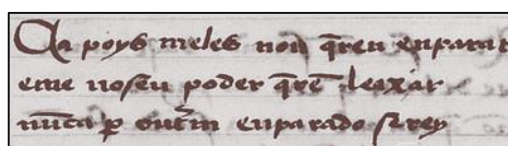 Ca poys meles non q̃ren enparar
eme no seu poder q̃rẽ leixar
nũca ꝑ out̃m enparado s̃rey